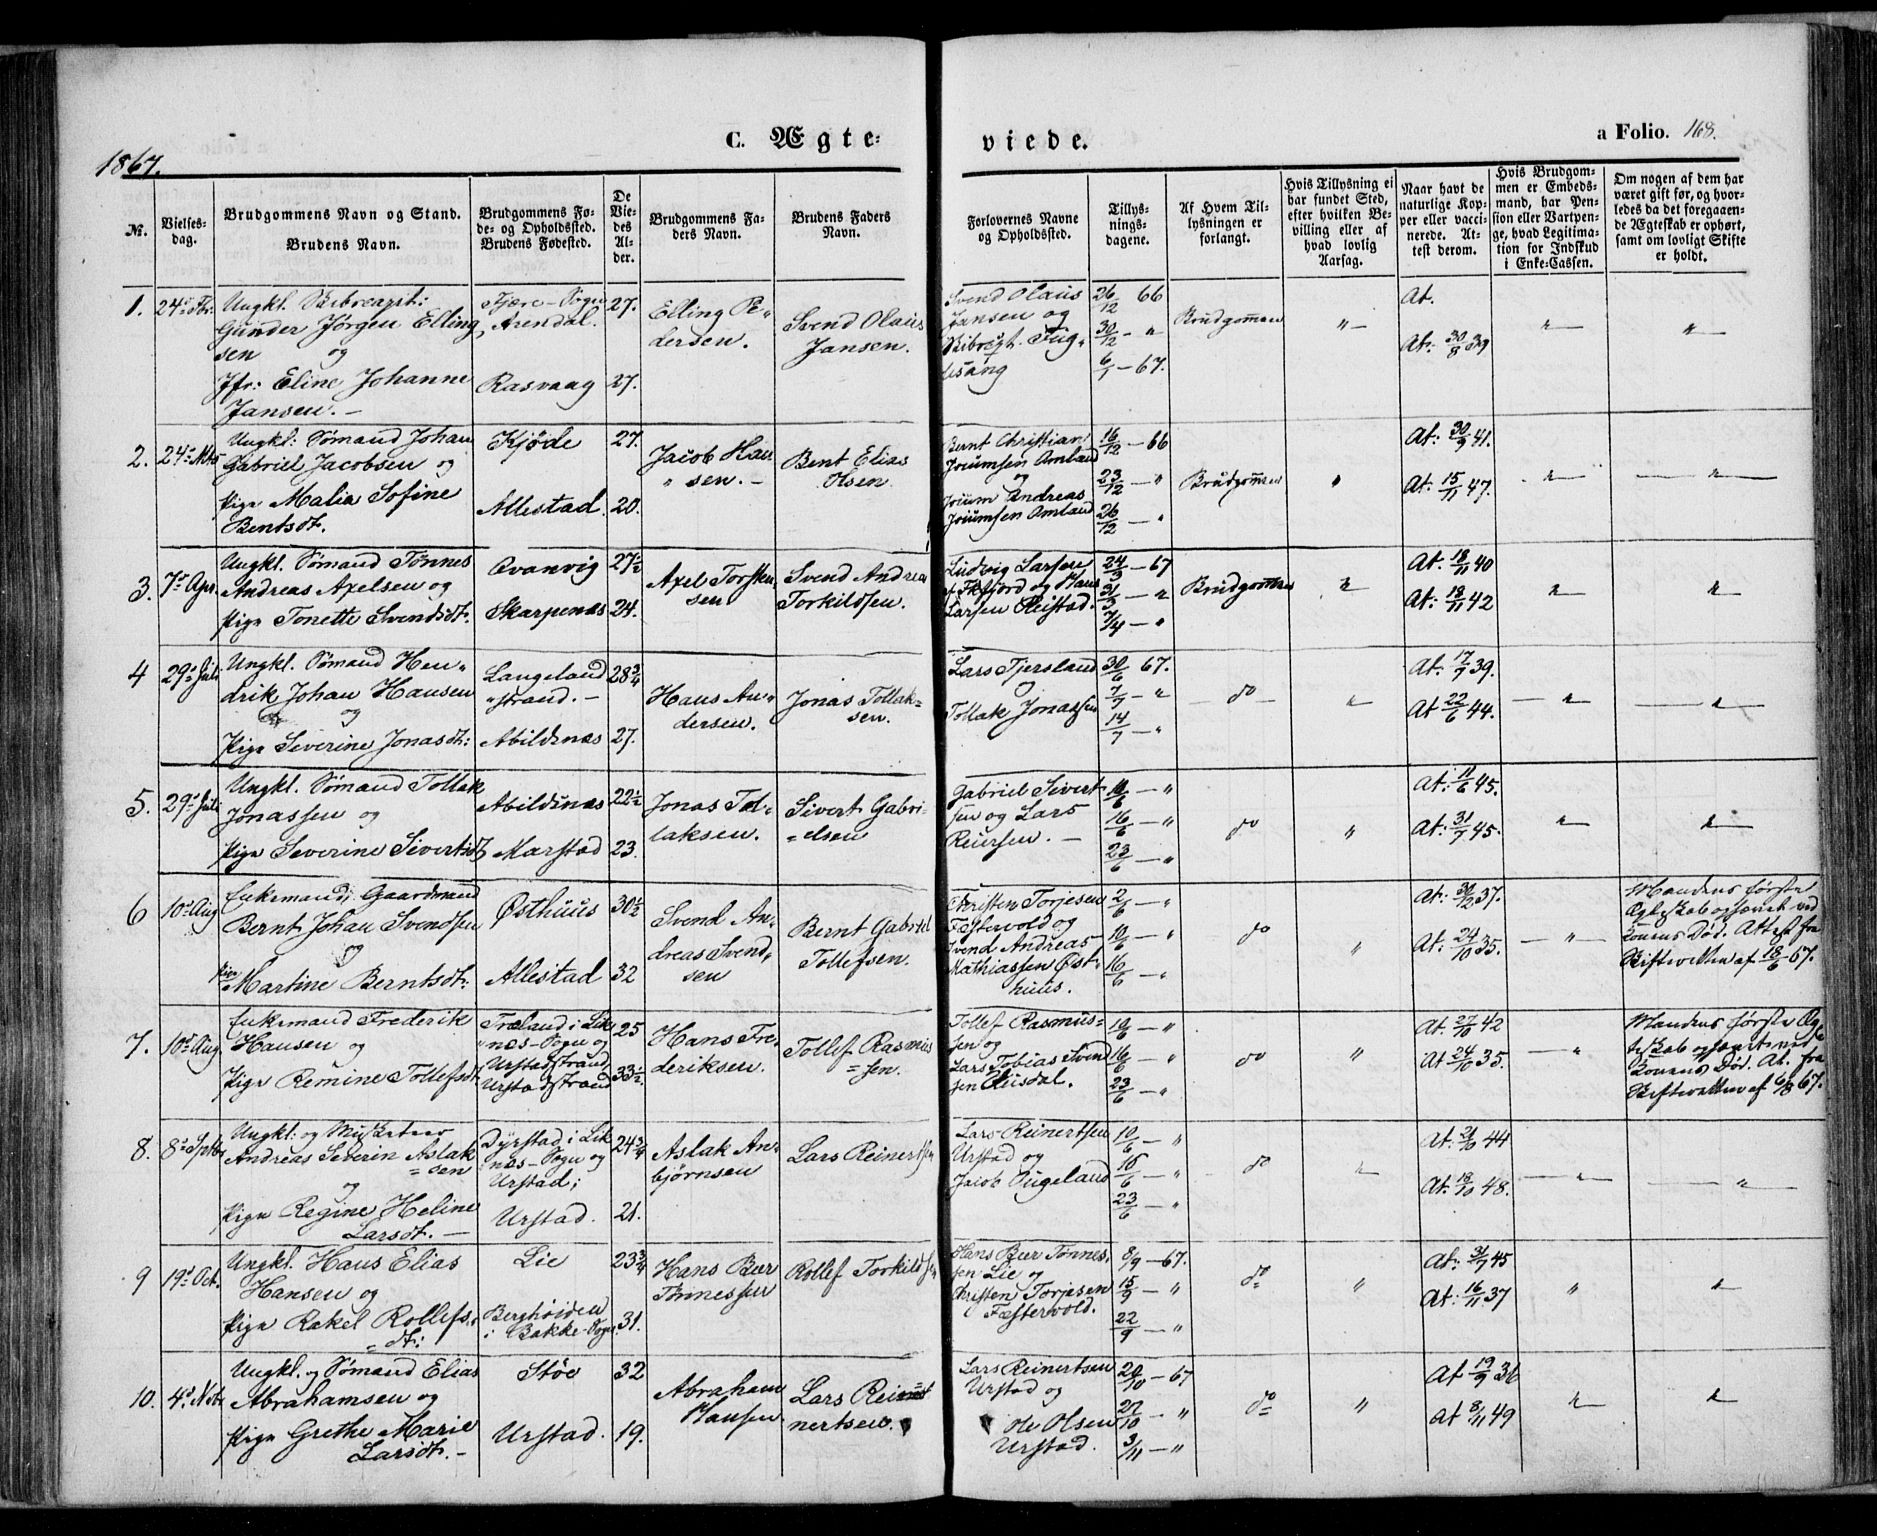 C. Ægte-
viede.
a Folio. 168.
1867.
No.
Vielses-
dag.
Brudgommens Navn og Stand.
Brudens Navn.
Brudgommens Fø-
de- og Opholdssted.
Brudens Fødested.
De
Vie-
des
Al-
der.
Brudgommens Fa-
ders Navn.
Brudens Faders
Navn.
Forlovernes Navne
og Opholdssted.
Tillys-
nings-
dagene.
Af Hvem Til-
lysningen er
forlangt.
Hvis Tillysning ei
har fundet Sted,
efter hvilken Be-
villing eller af
hvad lovlig
Aarsag.
Naar havt de
naturlige Kop-
per eller vacci-
nerede. At-
test derom.
Hvis Brudgom-
men er Embeds-
mand, har Pen-
sion eller Vartpen-
ge, hvad Legitima-
tion for Indskud
i Enke-Cassen.
Om nogen af dem har
været gift før, og hvor-
ledes da det foregaaen-
de Ægteskab er ophørt,
samt om lovligt Skifte
er holdt.
1. 24de Fbr.
Ungkl.
Gunder Jörgen Elling
sen og
Jfr: Eline Johanne
Jansen. —
Fjære-Sogn
Arendal.
Rasvaag
27.
27.
Elling Pe-
dersen.
Svend Olaus
Jansen.
Svend Olaus
Jansen og
26/12 66
30/12 — "
6/1 — 67.
Brudgommen
"
At.
At. 30/8 39
"
"
2. 24de Mts
Ungkl: Sömand Johan
Gabriel Jacobsen og
Pige Malia Sofine
Bentsdt.
Kjöde
Allestad.
27.
20.
Jacob Han
" sen. —
Bent Elias
Olsen
Bernt Christian
Joriumsen Amland
og
Jorium Andreas
Joriumsen Amland
16/12 — 66
23/12 — "
26/12 — "
Brudgommen
"
At: 30/9 41.
At: 15/11 47.
"
"
3. 7de Apr.
Ungkl. Sömand Tönnes
Andreas Axelsen og
Pige Tonette Svendsdt.
Qvanvig
Skarpenæs
27½
24.
Axel Torsten
sen
Svend Andreas
Torkildsen.
Ludvig Larsen
og Hans
Larsen Reistad.
24/3 — 67
31/3 — "
7/4 — "
Brudgommen
"
At: 18/11 40
At: 18/11 42
"
"
4 29de Juli
Ungkl. Sömand Hen-
drik Johan Hansen
og
Pige Severine Jonasdt:
Langeland
"strand. —
Abildsnæs
28¾
27.
Hans An-
dersen.
Jonas Tollak-
sen.
Lars Tjersland
og
Tollak Jonassen
30/6 67.
7/7 — "
14/7 — "
do
"
At: 17/7 39.
At 22/6 44.
"
"
5. 29de Juli
Ungkl. Sömand Tollak
Jonassen og
Pige Severine Sivertsdt
Abildsnæs
Marstad
22½
23.
Jonas Tol-
laksen.
Sivert Gabri-
elsen
Gabriel Sivert
sen og Lars
Reiersen. —
10/6 — "
16/6 — "
23/6 — "
do
"
At: 11/6 45.
At: 31/7 45.
"
"
6 10de Aug
Enkemand, Gaardmand
Bernt Johan Svendsen
og
Pige Martine Berntsdt:
Østhuus
Allestad
30½
32
Svend An-
dreas Svend-
sen
Bernt Gabriel
Tollefsen.
Christen Torjesen
Fæstervold og
Svend Andreas
Mathiassen Øst-
huus.
2/6 — "
10/6 — "
16/6 — "
do
"
At: 30/12 37.
At: 24/10 35.
"
Mandens förste
Ægteskab ophævet ved
Konens Död. Attest fra
Skifteretten af 18/6 67.
7. 10de Aug.
Enkemand Frederik
Hansen og
Pige Remine Tollefsdt
Træland i Lik
næs-Sogn og
Urstadstrand,
Urstadstrand
25
33½
Hans Fre-
deriksen.
Tollef Rasmus
sen.
Tollef Rasmus-
sen og
Lars Tobias Svend
sen Ousdal.
10/6 — "
16/6 — "
23/6 — "
do
"
At. 27/10 42
At 24/10 35.
"
Mandens förste Æg-
teskab ophævet ved
Konens Död. At. fra
Skifteretten af 6/8 67.
8. 8de Sptbr
Ungkl: og Musketeer
Andreas Severin Aslak
sen
og
Pige Regine Heline
Larsdt. —
Dyrstad i Lik
næs-Sogn og
Urstad;
Urstad.
24¾
21.
Aslak An-
björnsen
Lars Reinertsen
Lars Reinertsen
Urstad og
Jacob Fugeland
10/6 — "
16/6 — "
23/6 — "
do
"
At: 21/10 44
At: 18/10 48.
"
"
9 19de Oct.
Ungkl. Hans Elias
Hansen og
Pige Rakel Rollefs-
dt:
Lie
Berghöiden
i Bakke-Sogn
23¾
31.
Hans Bær
Tönnessen
Rollef Torkildsen
Hans Bær Tönnes-
sen Lie og
Christen Torjesen
Fæstervold.
8/9 — 67.
15/9 — "
22/9 — "
do
"
At: 31/7 45
At: 16/11 37
"
"
10. 4de Nvbr
Ungkl. og Sömand Elias
Abrahamsen og
Pige Grethe Marie
Larsdt. —
Stöe
Urstad.
32
19.
Abraham
Hansen
Lars Rei
nertsen.
Lars Reinertsen
Urstad og
Ole Olsen
Urstad.
20/10 — 67
27/10 — "
3/11 — "
do
"
At 19/9 36
At 8/11 49
"
"